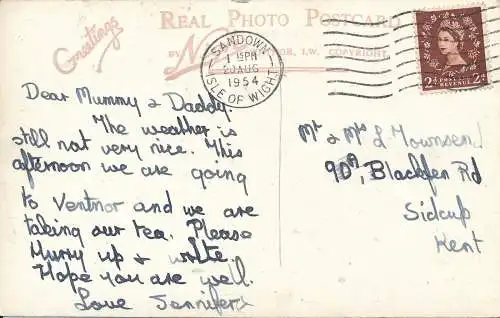 Greetings
REAL PHOTO POSTCARD
BY
I.W. COPYRIGHT.
SANDOWN
1 15 PM
20 AUG
1954
ISLE OF WIGHT
POSTAGE
REVENUE
2D 2D
Dear Mummy & Daddy.
The weather is
still not very nice. This
afternoon we are going
to Ventnor and we are
taking our tea. Please
Hurry up & write.
Hope you are well.
Love Jennifer
Mr & Mrs L Townsend
90A, Blackfen Rd
Sidcup
Kent